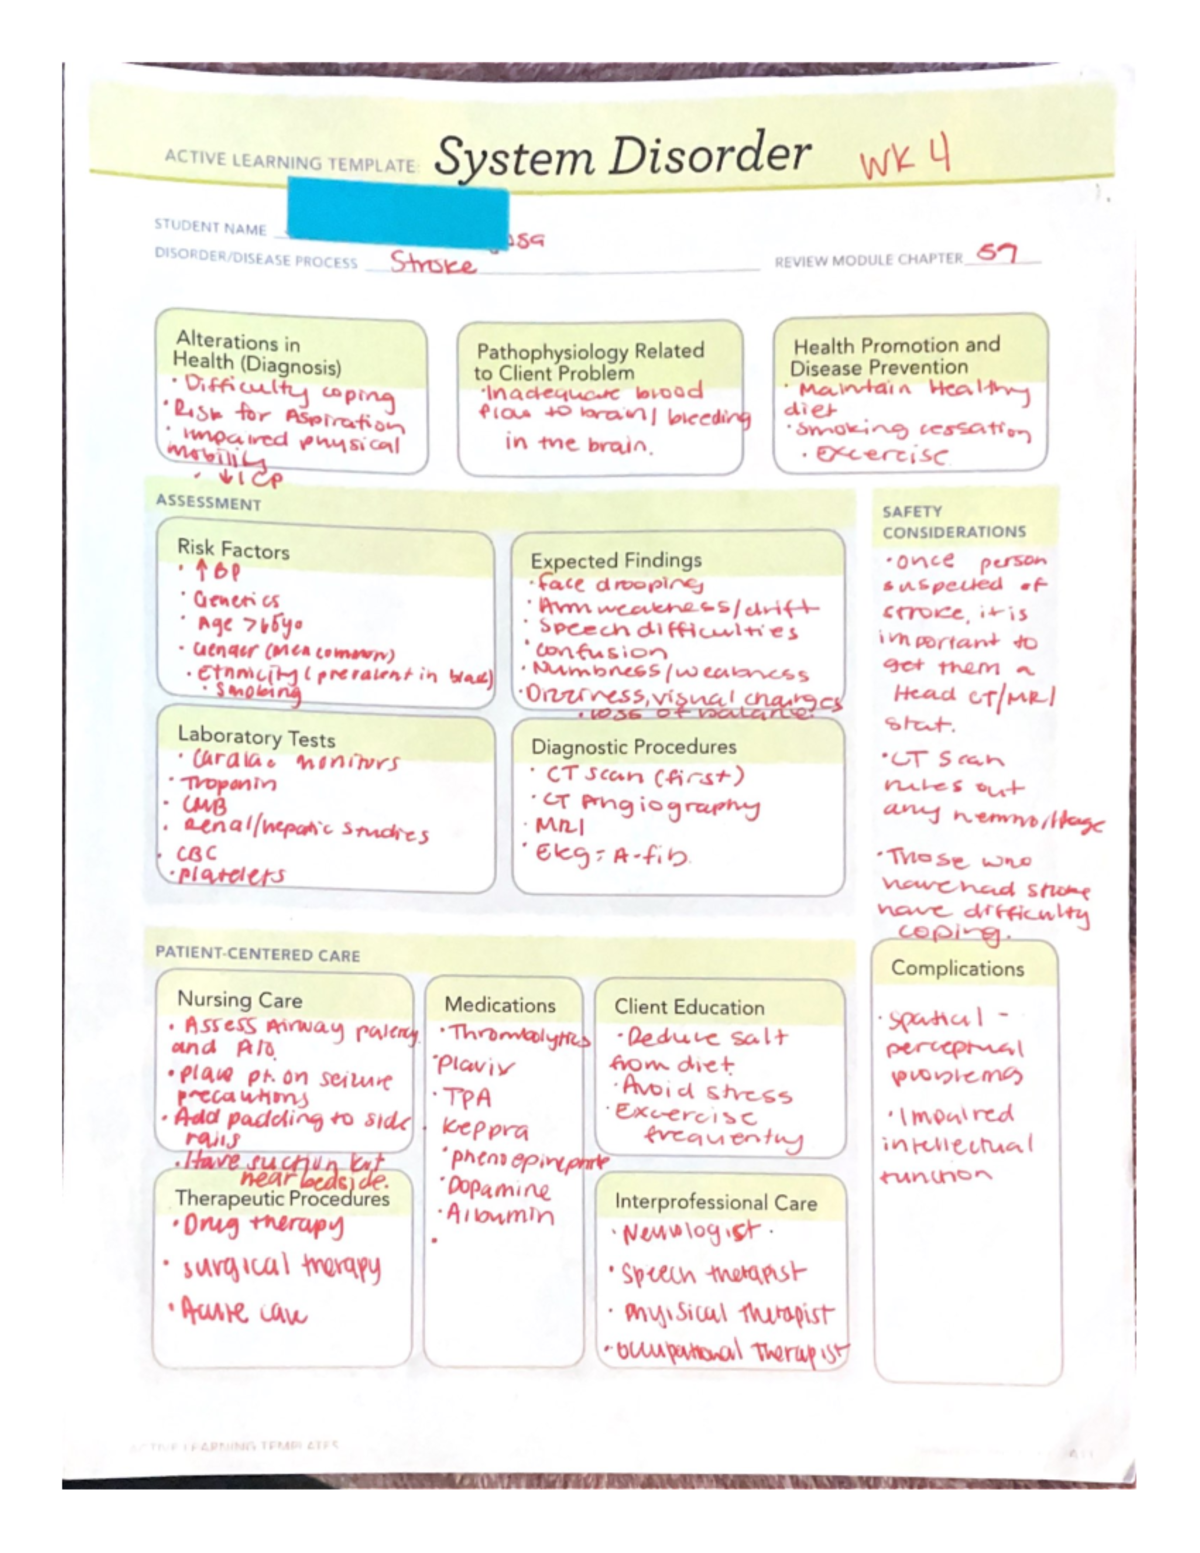 ACTIVE LEARNING TEMPLATE: System Disorder WK 4
STUDENT NAME
DISORDER/DISEASE PROCESS Stroke
REVIEW MODULE CHAPTER 57
Alterations in
Health (Diagnosis)
· Difficulty coping
· Risk for Aspiration
· impaired physical
mobility
· ↓ICP
Pathophysiology Related
to Client Problem
· Inadequate blood
flow to brain/ bleeding
in the brain.
Health Promotion and
Disease Prevention
· Maintain Healthy
diet
· smoking cessation
· Excercise
ASSESSMENT
Risk Factors
· ↑BP
· Genetics
· Age >65yo
· Gender (Men common)
· Ethnicity (prevalent in black)
· Smoking
Expected Findings
· Face drooping
· Arm weakness/drift
· Speech difficulties
· confusion
· Numbness/weakness
· Dizziness, visual changes
· loss of balance.
Laboratory Tests
· Cardiac monitors
· Troponin
· CMB
· Renal/hepatic studies
· CBC
· Platelets
Diagnostic Procedures
· CT scan (first)
· CT Angiography
· MRI
· Ekg = A-fib.
SAFETY
CONSIDERATIONS
· once person
suspected of
stroke, it is
important to
get them a
Head CT/MRI
stat.
· CT Scan
rules out
any
· Those who
have had stroke
have difficulty
coping.
PATIENT-CENTERED CARE
Nursing Care
· Assess Airway patency
and
· place pt. on seizure
precautions
· Add padding to side
rails
· Have suction kit
near bedside.
Medications
· Thrombolytics
· Plavix
· TPA
· Keppra
·
· Dopamine
· Albumin
·
Client Education
· Reduce salt
from diet.
· Avoid stress
· Excercise
frequently
Complications
· spatial -
perceptual
problems
· Impaired
intellectual
function
Therapeutic Procedures
· Drug therapy
· surgical therapy
· Acute care
Interprofessional Care
· Neurologist.
· Speech therapist
· Physical Therapist
· Occupational Therapist
ACTIVE LEARNING TEMPLATES